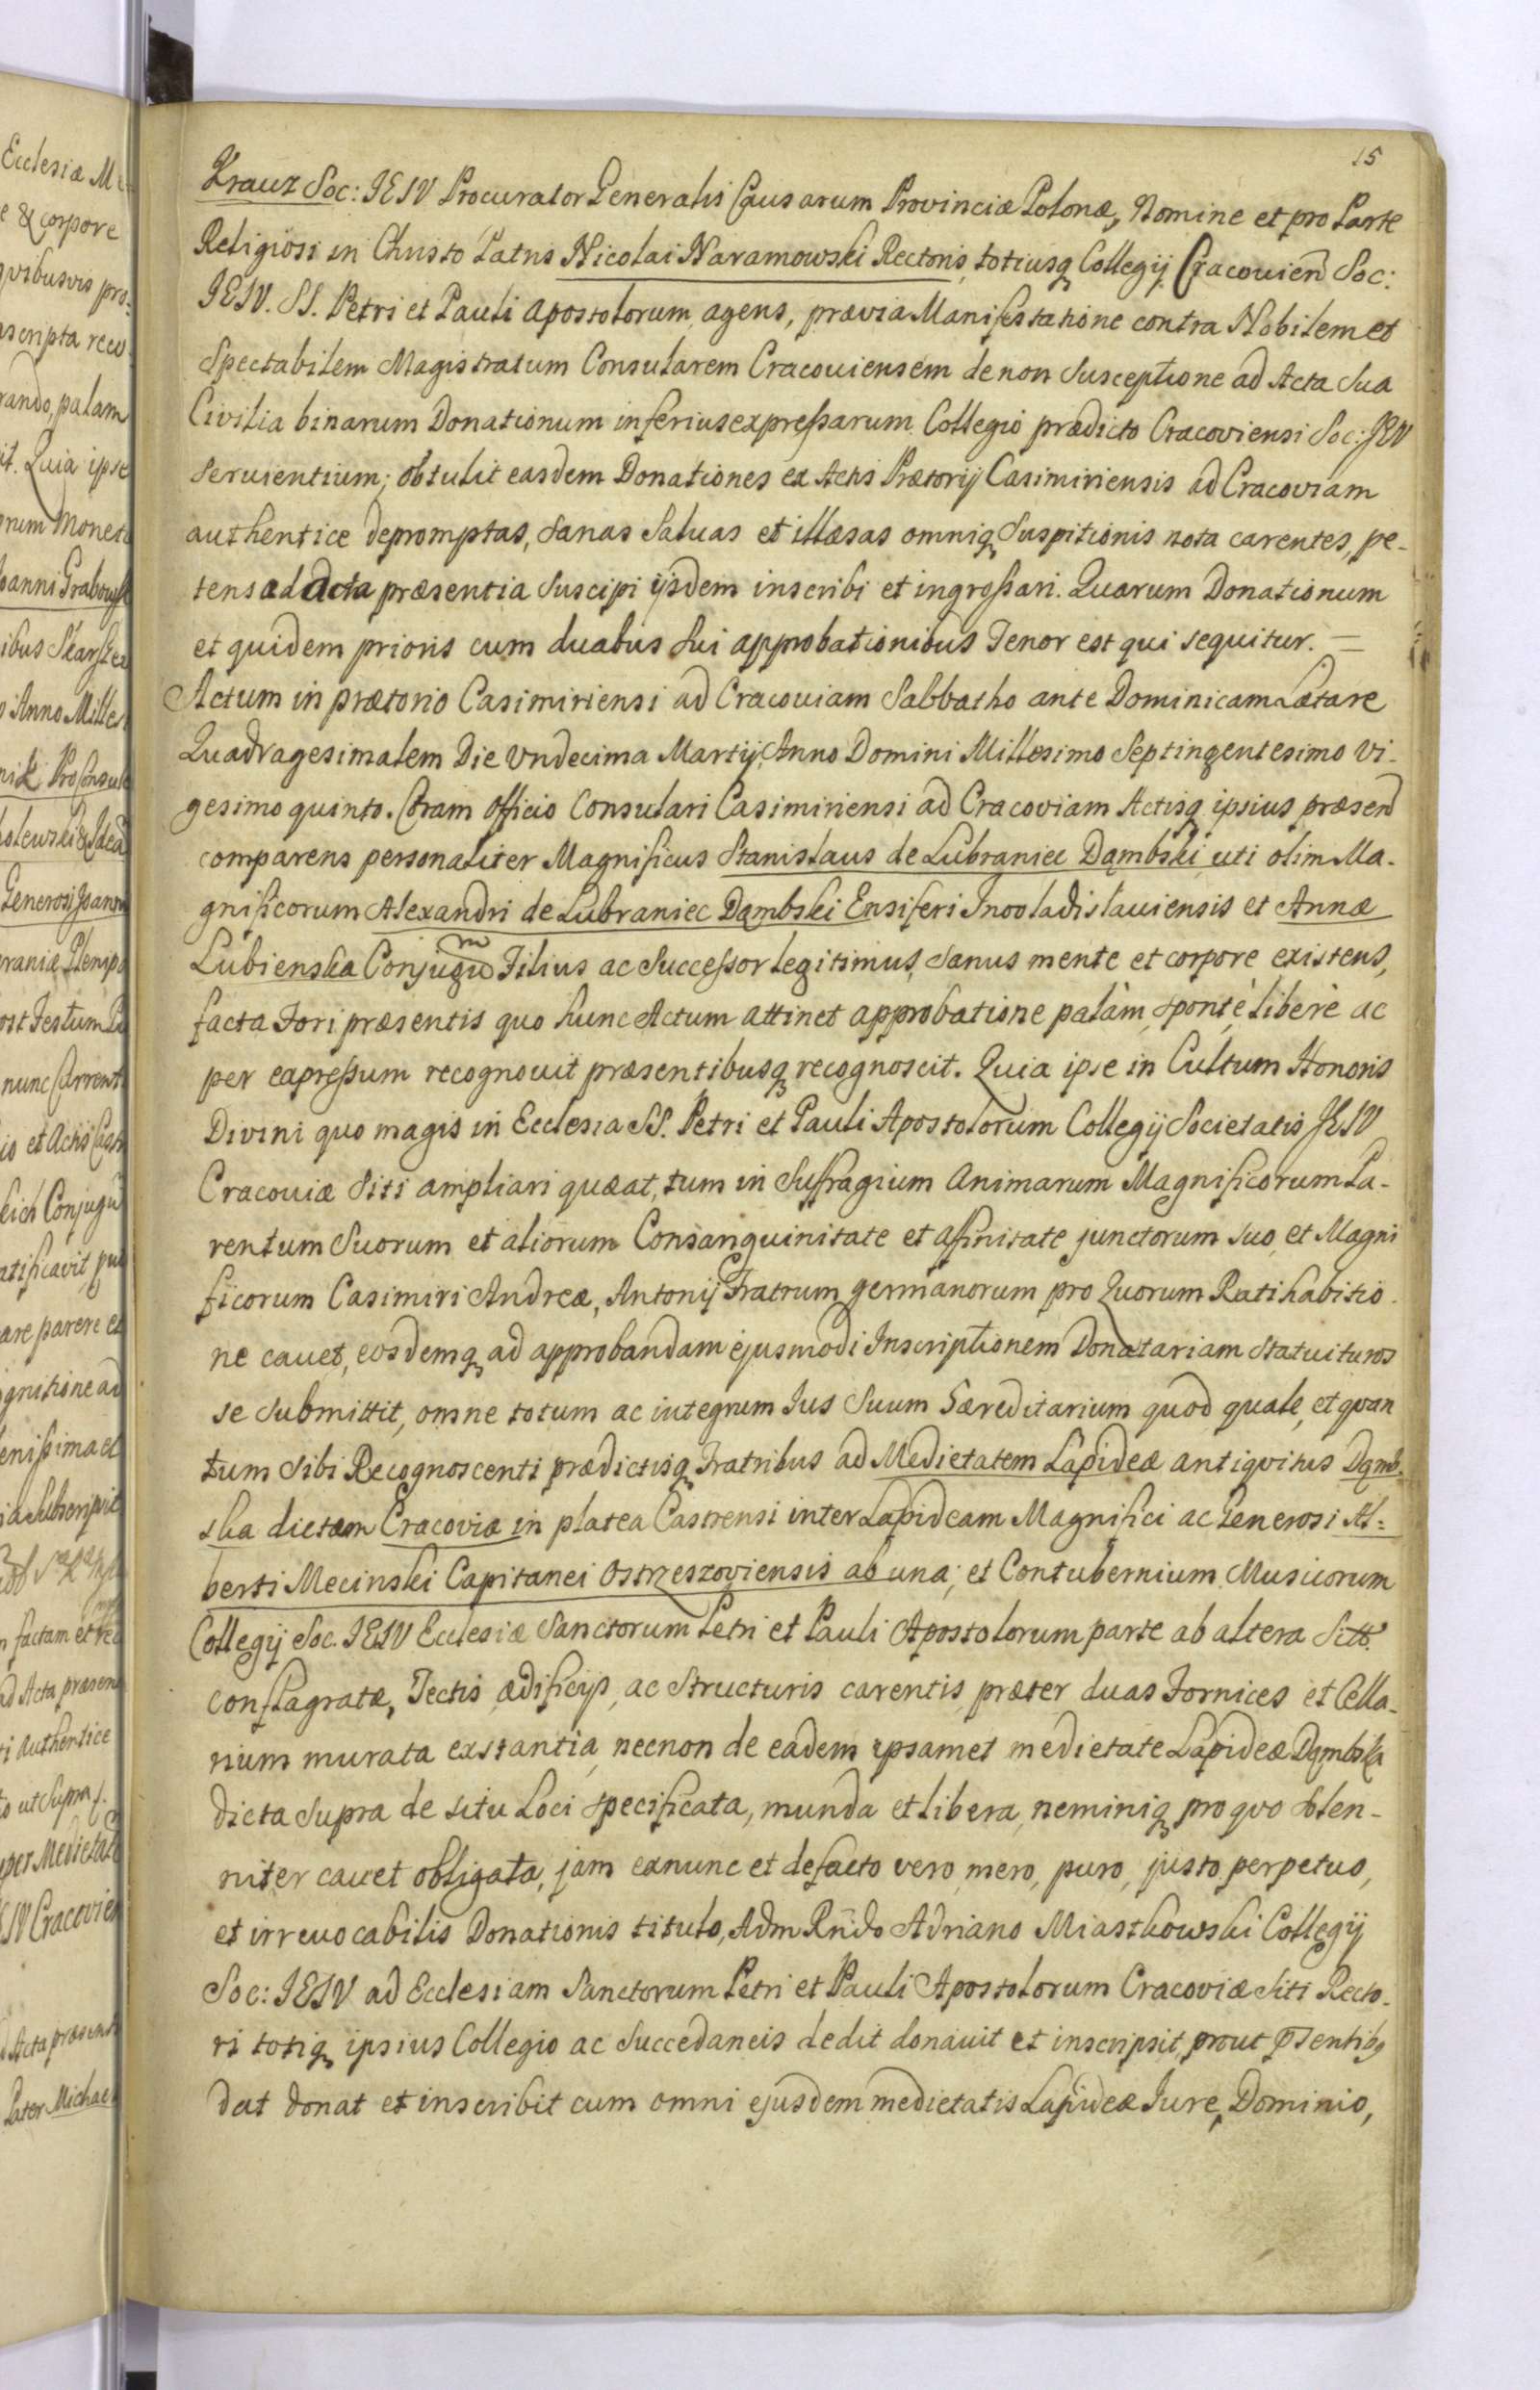 15
Krauz Soc: IESV Procurator Generalis Causarum Provinciæ Polonæ, Nomine et pro Parte
Religiosi in Christo Patris Nicolai Naramowski Rectoris, totiusq Collegij Cracovien Soc:
IESV. SS. Petri et Pauli Apostolorum agens, prævia Manifestatione contra Nobilem et
Spectabilem Magistratum Consularem Cracouiensem de non Susceptione ad Acta Sua
Civilia binarum Donationum inferius expressarum Collegio prædicto Cracoviensi Soc: IESV
seruientium; obtulit easdem Donationes ex Actis Prætorij Casimiriensis ad Cracoviam
authentice depromptas, Sanas Saluas et illæsas omniq Suspitionis nota carentes, pe-
tens ad Acta præsentia Suscipi ijsdem inscribi et ingrossari. Quarum Donationum
et quidem prioris cum duabus Sui approbationibus Tenor est qui sequitur. =
Actum in prætorio Casimiriensi ad Cracouiam Sabbatho ante Dominicam Lætare
Quadragesimalem Die Vndecima Martij, Anno Domini Millesimo Septingentesimo Vi-
gesimo quinto. Coram Officio Consulari Casimiriensi ad Cracoviam Actisq ipsius præsen
comparens personaliter Magnificus Stanislaus de Lubraniec Dąmbski uti olim Ma-
gnificorum Alexandri de Lubraniec Dąmbski Ensiferi Inovladislauiensis et Annæ
Lubienska Conjugu m Filius ac Successor legitimus, Sanus mente et corpore existens,
facta Fori præsentis quo hunc Actum attinet approbatione palàm, sponte libere ac
per expressum recognouit præsentibusq recognoscit. Quia ipse in Cultum Honoris
Divini quo magis in Ecclesia SS. Petri et Pauli Apostolorum Collegij Societatis IESV
Cracouiæ Siti ampliari quæat, tum in Suffragium Animarum Magnificorum Pa-
rentum Suorum et aliorum Consanguinitate et affinitate junctorum suo, et Magni
ficorum Casimiri Andreæ, Antonij Fratrum germanorum pro Quorum Ratihabitio-
ne cauet, eosdemq ad approbandam ejusmodi Inscriptionem Donatariam statuituros
se submittit, omne totum ac integrum Ius Suum Hæreditarium quod quale, et quan
tum Sibi Recognoscenti prædictisq Fratribus ad Medietatem Lapideæ antiquitus Dąmb-
ska dictam Cracoviæ in platea Castrensi inter Lapideam Magnifici ac Generosi Al=
berti Mecinski Capitanei Ostrzeszoviensis ab una; et Contubernium Musicorum
Collegij Soc. IESV Ecclesiæ Sanctorum Petri et Pauli Apostolorum parte ab altera Sitt.
conflagratæ, Tectis ædificijs, ac Structuris carentis præter duas Fornices et Cella-
rium murata exstantia, necnon de eadem ipsamet medietate Lapideæ Dąmbska
dicta Supra de situ Loci specificata, munda et libera, neminiq pro quo Solen-
niter cauet obligata, jam exnunc et defacto vero, mero, puro, justo perpetuo,
et irreuocabilis Donationis titulo, Adm Rndo Adriano Miastkowski Collegij
Soc: IESV ad Ecclesiam Sanctorum Petri et Pauli Apostolorum Cracoviæ Siti Recto-
ri totiq ipsius Collegio ac Succedaneis dedit donauit et inscripsit, prout pntibq
dat donat et inscribit cum omni ejusdem medietatis Lapideæ Iure, Dominio,